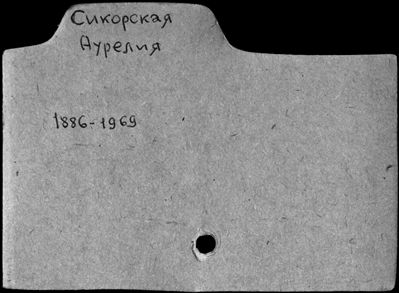 Сикорская
Аурелия
1886-1969